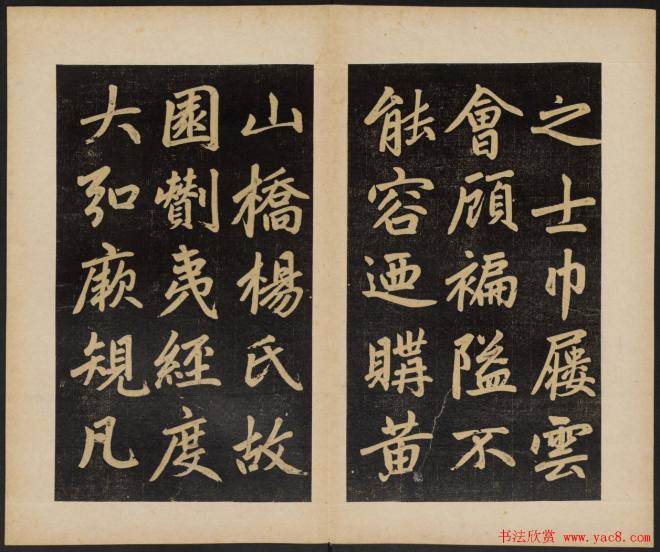 之士巾屨雲
會顧褊隘不
能容迺購黃
山橋楊氏故
園劗夷經度
大弘厥規凡
书法欣赏 www.yac8.com